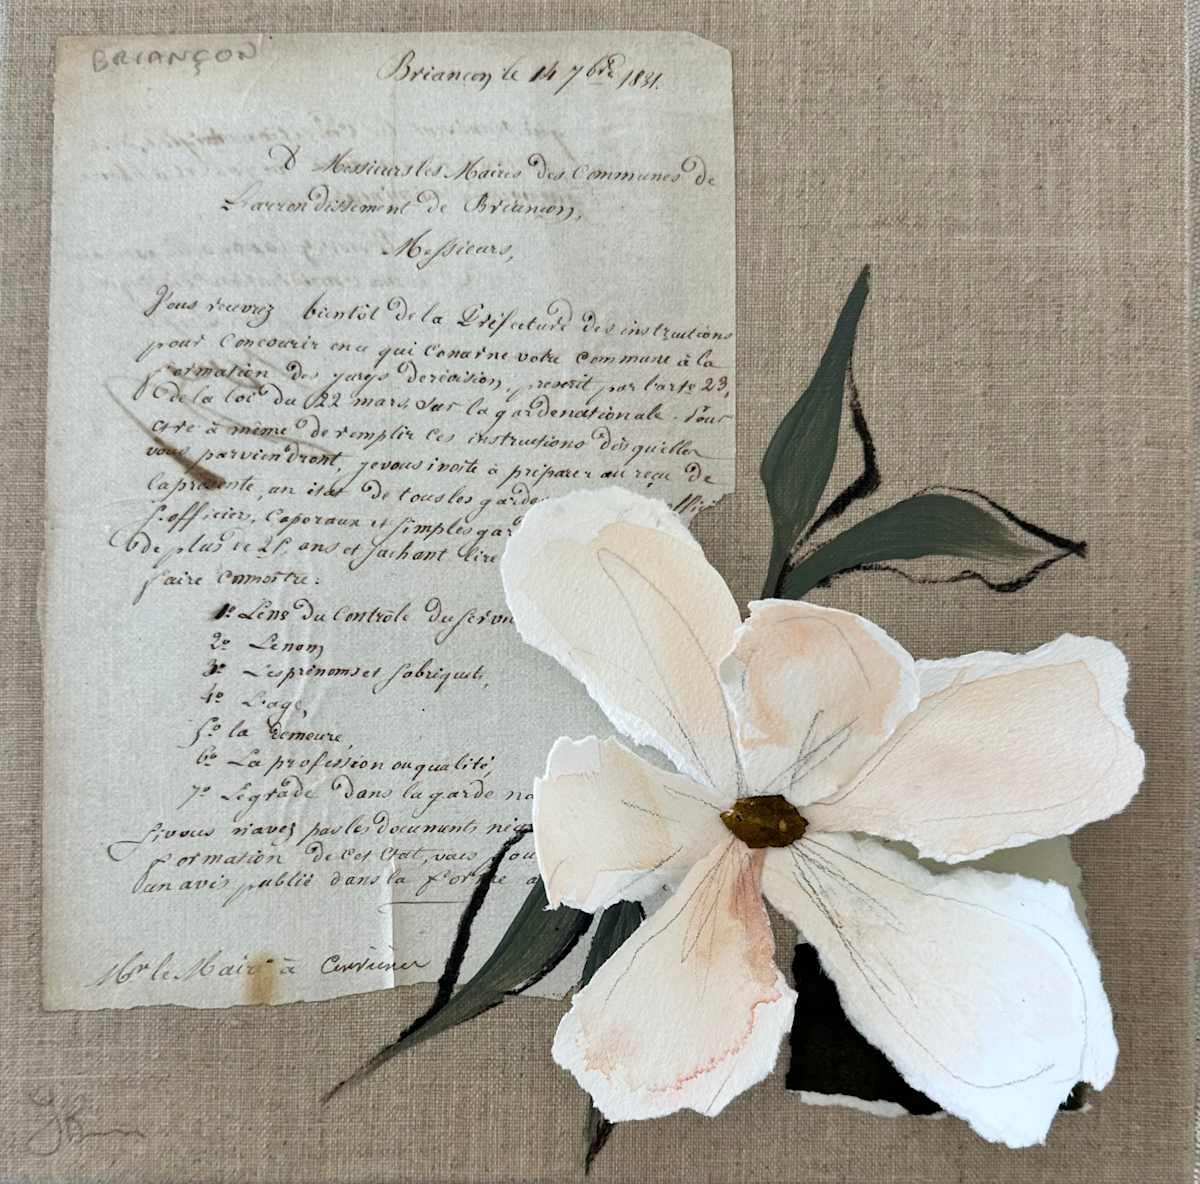 BRIANÇON
Briançon le 14 7bre 1831.
à Messieurs les Maires des Communes de
L'arrondissement de Briançon,
Messieurs,
Vous recevrez bientôt de la Préfecture des instructions
pour concourir en ce qui concerne votre commune à la
formation des jurys de révision, prescrit par l'arte 23,
de la loi du 22 mars, sur la garde nationale. Pour
être à même de remplir ces instructions dès qu'elles
vous parviendront, je vous invite à préparer au reçu de
la présente, un état de tous les gardes
s. officiers, Caporaux et simples gar
de plus de 25 ans et sachant lire
faire connoître:
1o Le no du Contrôle du servi
2o Le nom
3o Les prénoms et sobriquets,
4o L'age,
5o la demeure,
6o La profession ou qualité,
7o Le grade dans la garde na
Si vous n'avez pas les documents néc
formation de cet Etat, vous pou
un avis publié dans la forme a
Mr le Maire à Cervières